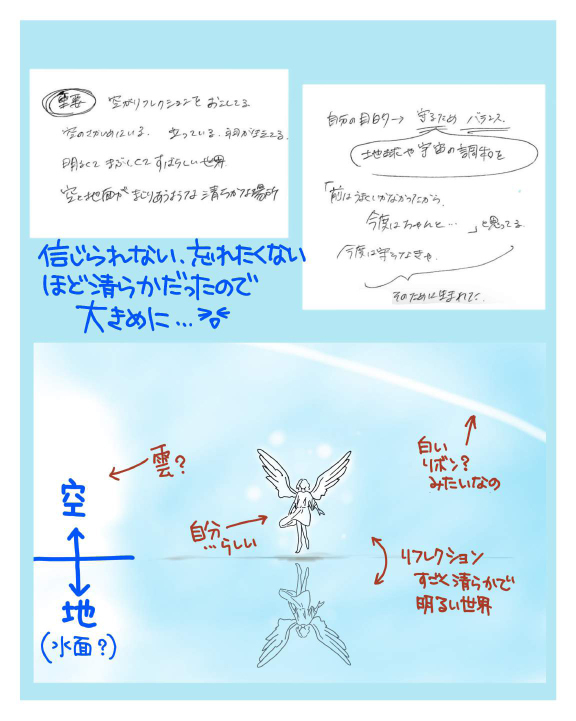 重要 空がリフレクションをおこしてる
空のさかいめにいる. 立っている. 羽が生えてる.
明るくてまぶしくてすばらしい世界
空と地面がまじりあうような清らかな場所
自分の目的→守るため バランス.
地球や宇宙の調和を
「前は
今度はちゃんと…」と思ってる
今度は守らなきゃ.
そのために生まれた.
信じられない、忘れたくない
ほど清らかだったので
大きめに…
雲?
白い
リボン?
みたいなの
空
自分
…らしい
リフレクション
すごく清らかで
明るい世界
地
(水面?)